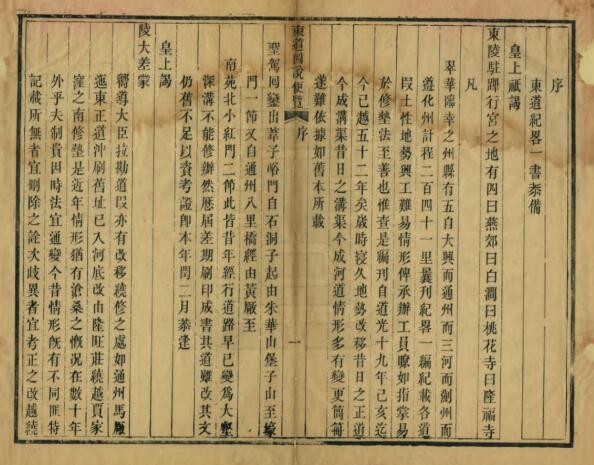 序
東道紀畧一書恭備
皇上祇謁
東陵駐蹕行宮之地有四曰燕郊曰白澗曰桃花寺曰隆福寺
凡
翠華臨幸之州縣有五自大興而通州而三河而薊州而
遵化州計程二百四十一里曩刊紀畧一編紀載各道
叚土性地勢興工難易情形俾承辦工員瞭如指掌易
於修墊法至善也惟查是編刊自道光十九年己亥迄
今已越五十二年矣歲時寖久地勢改移昔日之正道
今成溝渠昔日之溝渠今成河道情形多有變更簡冊
遂難依據如舊本所載
東道圖說便覽
序
一
聖駕回鑾出葦子峪門自石洞子起由朱華山堡子山至壕
門一節又自通州八里橋經由黃厰至
南苑北小紅門二節此皆昔年經行道路早已變爲大壑
深溝不能修辦然歷屆差期刷印成書其道雖改其文
仍舊不足以資考證卽本年閏二月恭逢
皇上謁
陵大差蒙
嚮導大臣拉勘道叚亦有改移繞修之處如通州馬厰
迤東正道沖刷舊址已入河底改由隆旺莊繞越賈家
窪之南修墊是近年情形猶有滄桑之慨況在數十年
外乎夫制貴因時法宜通變今昔情形旣有不同則特
記載所無者宜刪除之詮次歧異者宜考正之改越繞